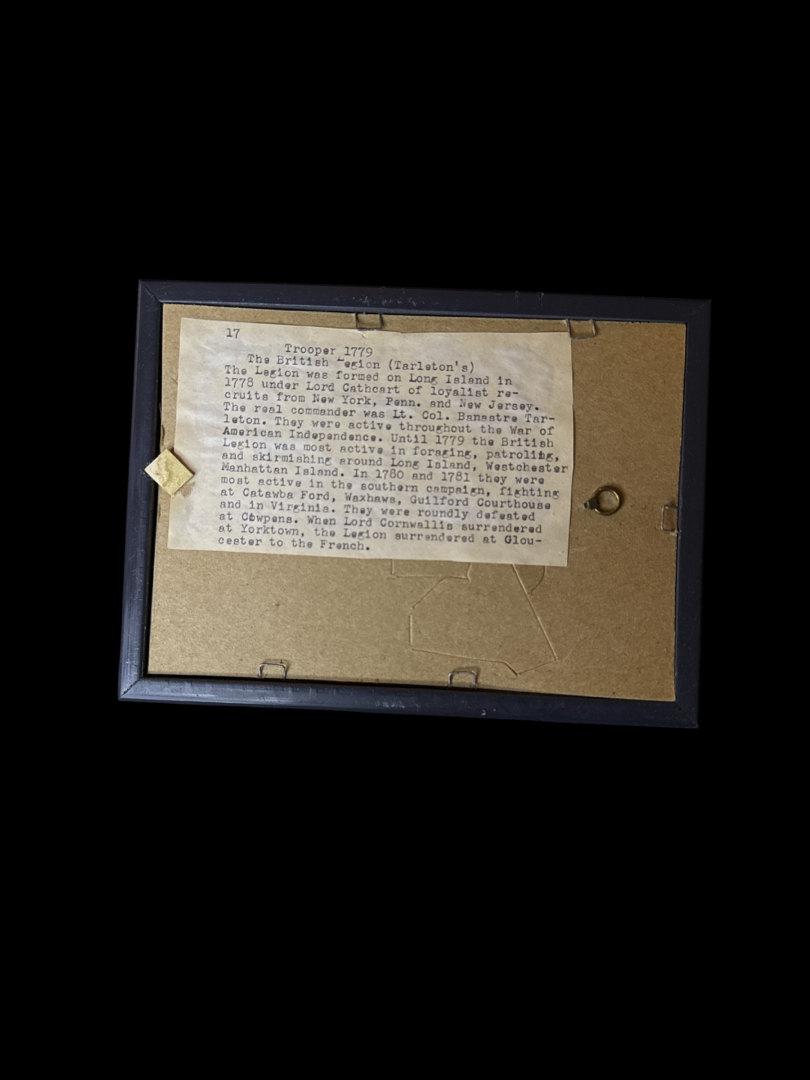 17
Trooper 1779
The British Legion (Tarleton's)
The Legion was formed on Long Island in
1778 under Lord Cathcart of loyalist re-
cruits from New York, Penn. and New Jersey.
The real commander was Lt. Col. Banastre Tar-
leton. They were active throughout the War of
American Independence. Until 1779 the British
Legion was most active in foraging, patroling,
and skirmishing around Long Island, Westchester
Manhattan Island. In 1780 and 1781 they were
most active in the southern campaign, fighting
at Catawba Ford, Waxhaws, Guilford Courthouse
and in Virginia. They were roundly defeated
at Cowpens. When Lord Cornwallis surrendered
at Yorktown, the Legion surrendered at Glou-
cester to the French.